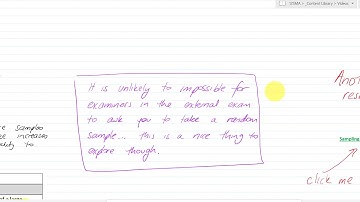 SYIMA > Content Library > Videos
It is unlikely to impossible for
examiners in the external exam
to ask you to take a random
sample... this is a nice thing to
explore though.
re samples
e increases
lity to
Anot
res
Sampling
click me